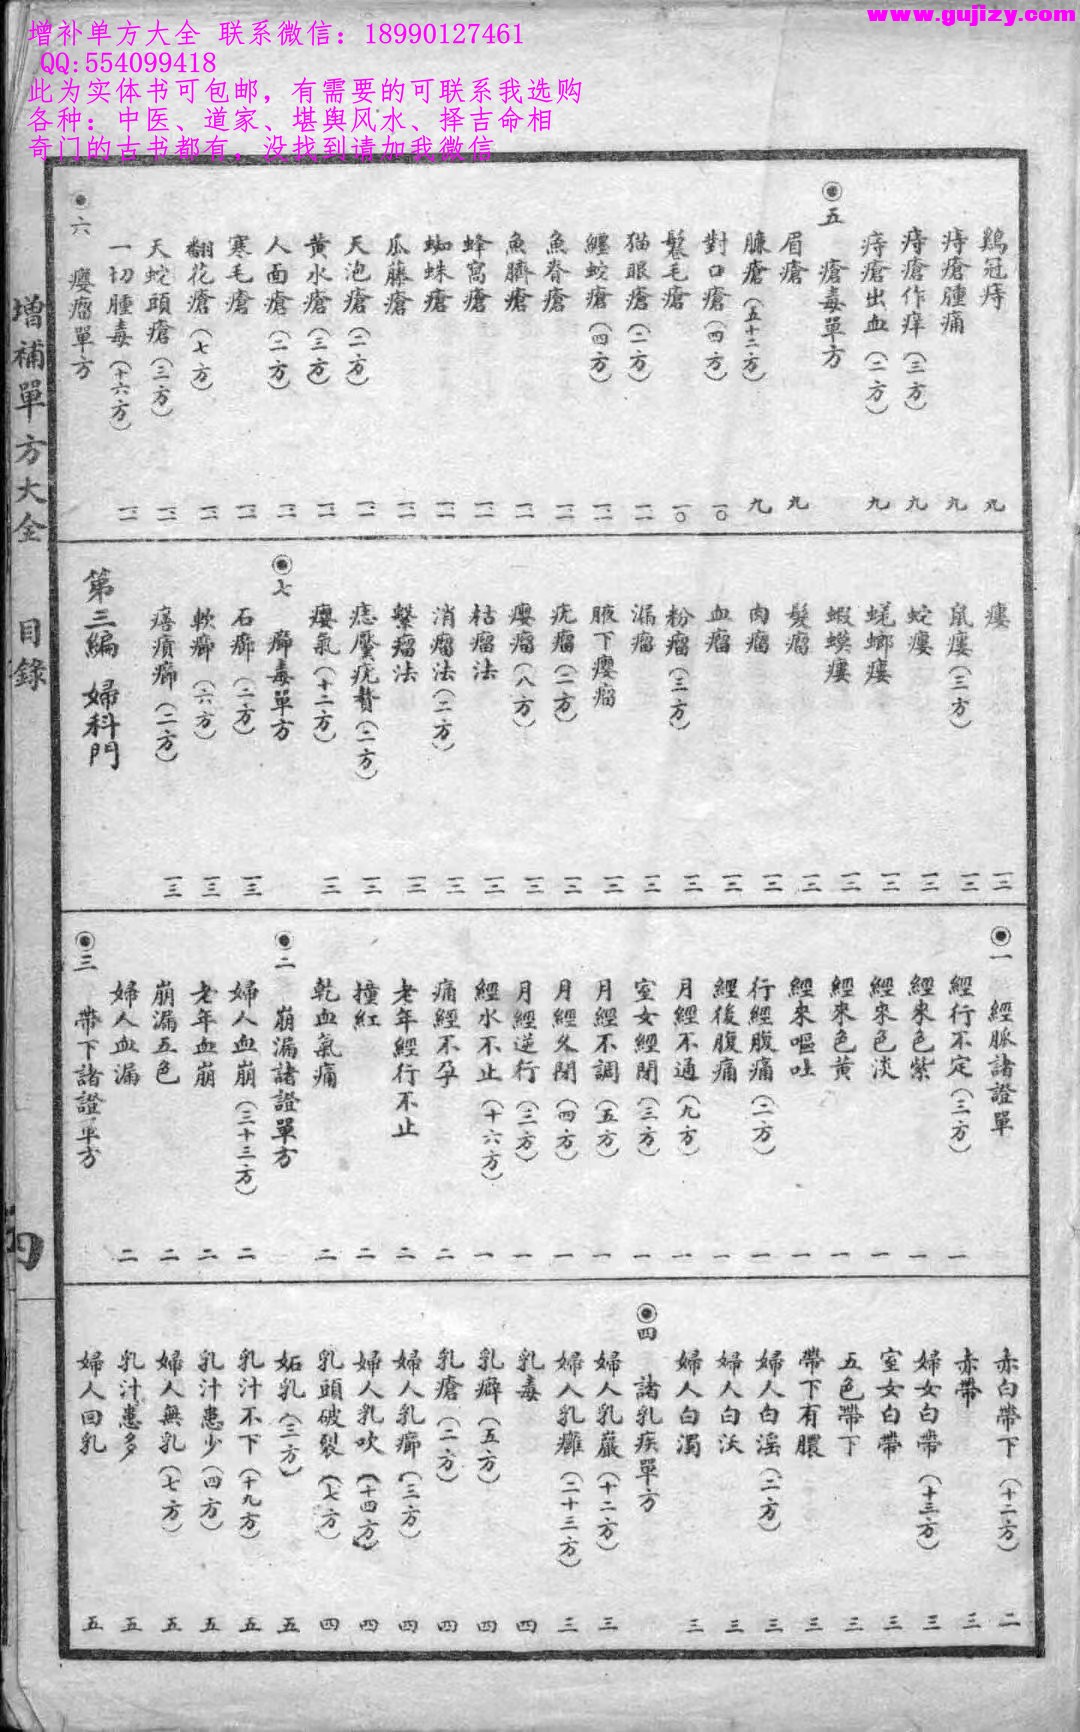 www.gujizy.com
增补单方大全 联系微信：18990127461
QQ:554099418
此为实体书可包邮，有需要的可联系我选购
各种：中医、道家、堪舆风水、择吉命相
奇门的古书都有，没找到请加我微信
鷄冠痔 九
痔瘡腫痛 九
痔瘡作痒（三方） 九
痔瘡出血（二方） 九
◉五 瘡毒單方
眉瘡 九
臁瘡（五十二方） 九
對口瘡（四方） 一〇
鬈毛瘡 一〇
猫眼瘡（二方） 一一
纏蛇瘡（四方） 一一
魚脊瘡 一一
魚臍瘡 一一
蜂窩瘡 一一
蜘蛛瘡 一一
瓜藤瘡 一一
天泡瘡（二方） 一一
黄水瘡（三方） 一一
人面瘡（二方） 一一
寒毛瘡 一一
翻花瘡（七方） 一一
天蛇頭瘡（三方） 一一
一切腫毒（十六方） 一一
◉六 癭瘤單方
瘻 一二
鼠瘻（三方） 一二
蛇瘻 一二
蜣螂瘻 一二
蝦蟆瘻 一二
髮瘤 一二
肉瘤 一二
血瘤 一二
粉瘤（三方） 一二
漏瘤 一二
腋下癭瘤 一二
疣瘤（二方） 一二
癭瘤（八方） 一二
枯瘤法 一二
消瘤法（二方） 一二
繫瘤法 一二
痣黶疣贅（二方） 一二
癭氣（十二方） 一二
◉七 癤毒單方
石癤（二方） 一三
軟癤（六方） 一三
瘡癀癤（二方） 一三
第三編 婦科門
◉一 經脈諸證單
經行不定（三方） 一
經來色紫 一
經來色淡 一
經來色黄 一
經來嘔吐 一
行經腹痛（二方） 一
經後腹痛 一
月經不通（九方） 一
室女經閉（三方） 一
月經不調（五方） 一
月經久閉（四方） 一
月經逆行（三方） 一
經水不止（十六方） 一
痛經不孕 二
老年經行不止 二
撞紅 二
乾血氣痛 二
◉二 崩漏諸證單方
婦人血崩（三十三方） 二
老年血崩 二
崩漏五色 二
婦人血漏 二
◉三 帶下諸證單方
赤白帶下（十二方） 二
赤帶 三
婦女白帶（十三方） 三
室女白帶 三
五色帶下 三
帶下有膿 三
婦人白淫（二方） 三
婦人白沃 三
婦人白濁 三
◉四 諸乳疾單方
婦人乳巖（十二方） 三
婦人乳癰（二十三方） 三
乳毒 四
乳癖（五方） 四
乳瘡（二方） 四
婦人乳癤（三方） 四
婦人乳吹（十四方） 四
乳頭破裂（七方） 四
妬乳（三方） 五
乳汁不下（十九方） 五
乳汁患少（四方） 五
婦人無乳（七方） 五
乳汁患多 五
婦人回乳 五
增補單方大全 目錄